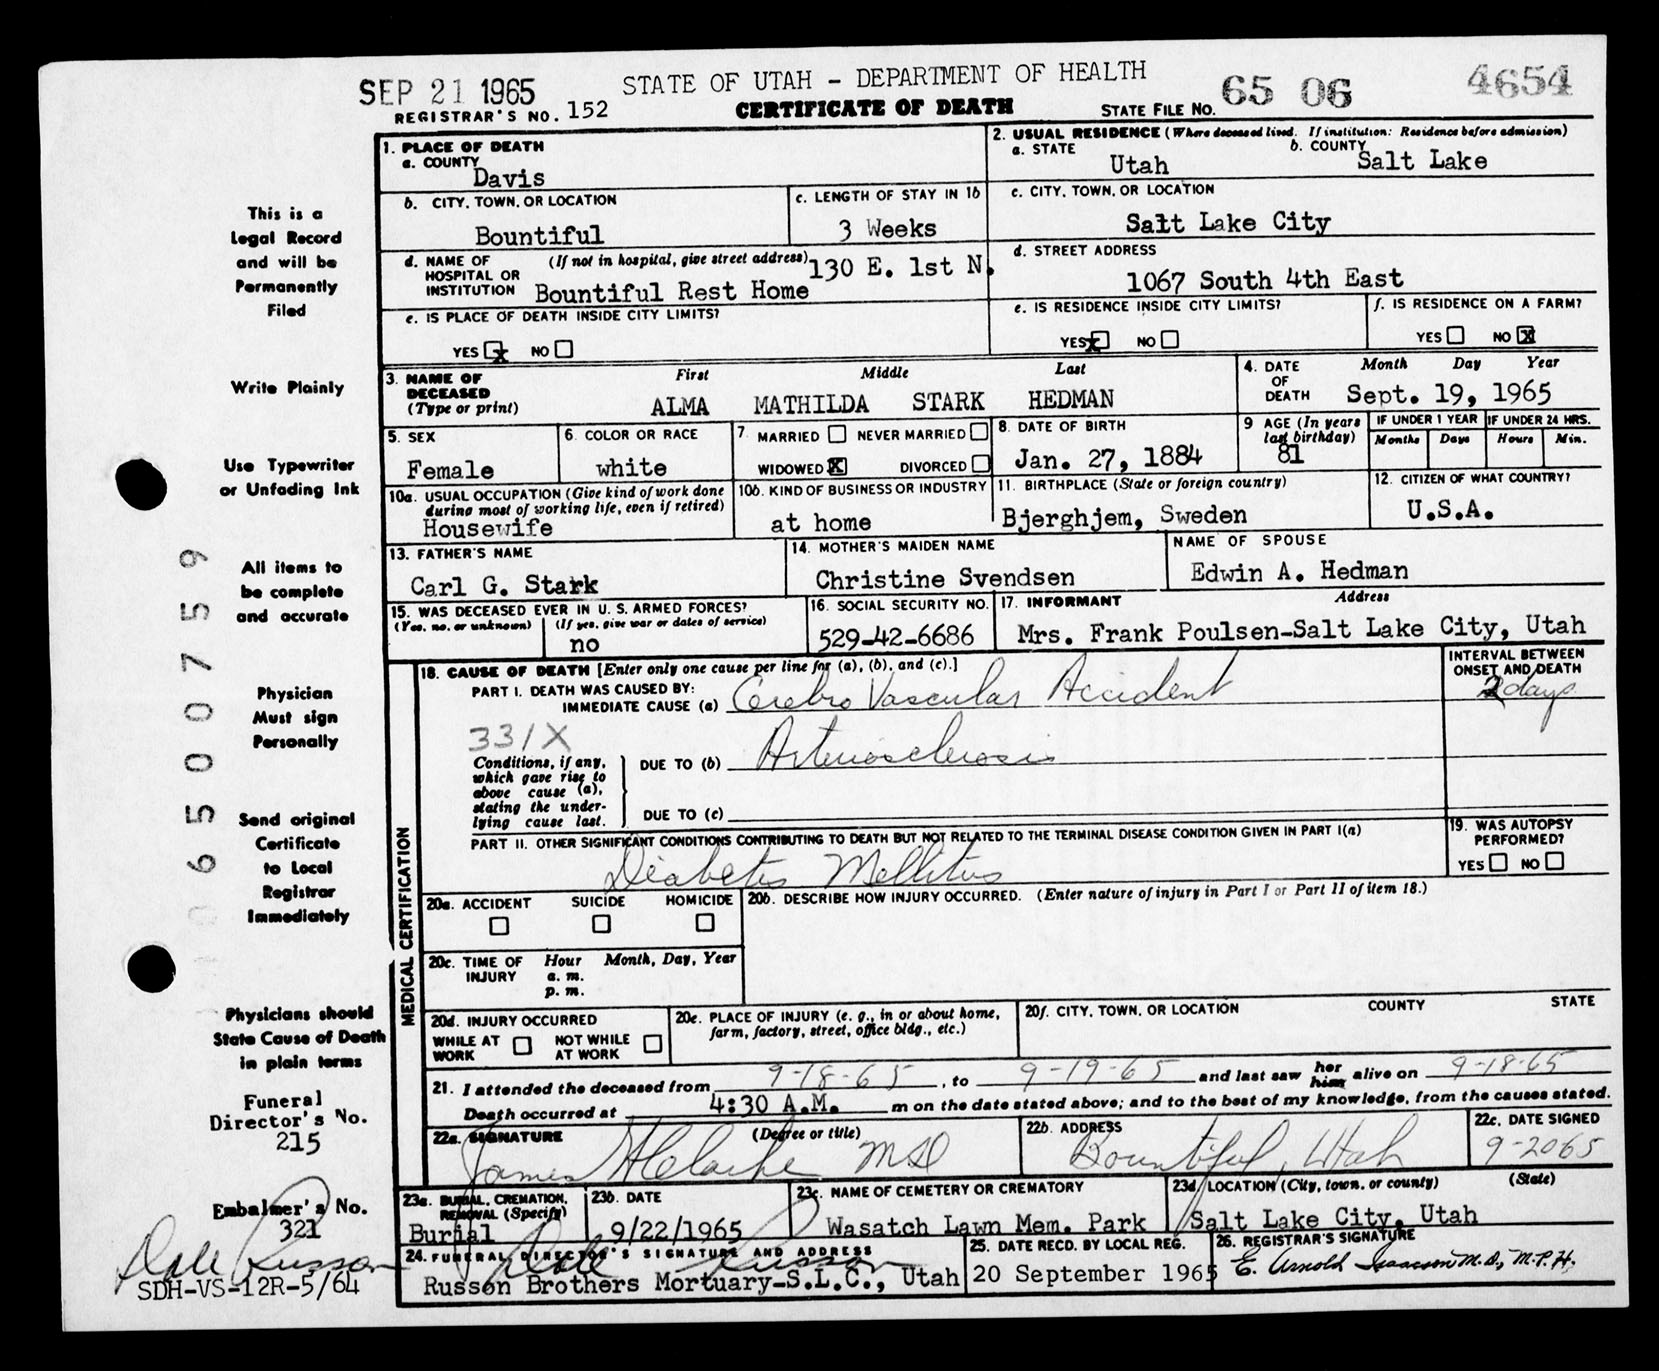 SEP 21 1965
STATE OF UTAH - DEPARTMENT OF HEALTH
65 06 4654
REGISTRAR'S NO. 152
CERTIFICATE OF DEATH
STATE FILE NO.
1. PLACE OF DEATH
a. COUNTY
Davis
2. USUAL RESIDENCE (Where deceased lived. If institution: Residence before admission)
a. STATE
Utah
b. COUNTY
Salt Lake
b. CITY, TOWN, OR LOCATION
Bountiful
c. LENGTH OF STAY IN 1b
3 Weeks
c. CITY, TOWN, OR LOCATION
Salt Lake City
d. NAME OF HOSPITAL OR INSTITUTION
(If not in hospital, give street address)
130 E. 1st N.
Bountiful Rest Home
d. STREET ADDRESS
1067 South 4th East
e. IS PLACE OF DEATH INSIDE CITY LIMITS?
YES X NO
e. IS RESIDENCE INSIDE CITY LIMITS?
YES X NO
f. IS RESIDENCE ON A FARM?
YES NO X
3. NAME OF DECEASED
(Type or print)
First Middle Last
ALMA MATHILDA STARK HEDMAN
4. DATE OF DEATH
Month Day Year
Sept. 19, 1965
5. SEX
Female
6. COLOR OR RACE
white
7. MARRIED NEVER MARRIED
WIDOWED X DIVORCED
8. DATE OF BIRTH
Jan. 27, 1884
9 AGE (In years last birthday)
81
IF UNDER 1 YEAR
Months Days
IF UNDER 24 HRS.
Hours Min.
10a. USUAL OCCUPATION (Give kind of work done during most of working life, even if retired)
Housewife
10b. KIND OF BUSINESS OR INDUSTRY
at home
11. BIRTHPLACE (State or foreign country)
Bjerghjem, Sweden
12. CITIZEN OF WHAT COUNTRY?
U.S.A.
13. FATHER'S NAME
Carl G. Stark
14. MOTHER'S MAIDEN NAME
Christine Svendsen
NAME OF SPOUSE
Edwin A. Hedman
15. WAS DECEASED EVER IN U.S. ARMED FORCES?
(Yes, no, or unknown) (If yes, give war or dates of service)
no
16. SOCIAL SECURITY NO.
529-42-6686
17. INFORMANT Address
Mrs. Frank Poulsen-Salt Lake City, Utah
MEDICAL CERTIFICATION
18. CAUSE OF DEATH [Enter only one cause per line for (a), (b), and (c).]
INTERVAL BETWEEN ONSET AND DEATH
PART I. DEATH WAS CAUSED BY:
IMMEDIATE CAUSE (a) Cerebro Vascular Accident
2 days
331X
Conditions, if any, which gave rise to above cause (a), stating the underlying cause last.
DUE TO (b) Arteriosclerosis
DUE TO (c)
PART II. OTHER SIGNIFICANT CONDITIONS CONTRIBUTING TO DEATH BUT NOT RELATED TO THE TERMINAL DISEASE CONDITION GIVEN IN PART I(a)
Diabetes Mellitus
19. WAS AUTOPSY PERFORMED?
YES NO
20a. ACCIDENT SUICIDE HOMICIDE
20b. DESCRIBE HOW INJURY OCCURRED. (Enter nature of injury in Part I or Part II of item 18.)
20c. TIME OF INJURY
Hour Month, Day, Year
a. m.
p. m.
20d. INJURY OCCURRED
WHILE AT WORK NOT WHILE AT WORK
20e. PLACE OF INJURY (e. g., in or about home, farm, factory, street, office bldg., etc.)
20f. CITY, TOWN, OR LOCATION COUNTY STATE
21. I attended the deceased from 9-18-65, to 9-19-65 and last saw her him alive on 9-18-65
Death occurred at 4:30 A.M. m on the date stated above; and to the best of my knowledge, from the causes stated.
22a. SIGNATURE (Degree or title)
James H Clarke MD
22b. ADDRESS
Bountiful, Utah
22c. DATE SIGNED
9-20-65
23a. BURIAL, CREMATION, REMOVAL (Specify)
Burial
23b. DATE
9/22/1965
23c. NAME OF CEMETERY OR CREMATORY
Wasatch Lawn Mem. Park
23d. LOCATION (City, town, or county) (State)
Salt Lake City, Utah
24. FUNERAL DIRECTOR'S SIGNATURE AND ADDRESS
Dale Russon
Russon Brothers Mortuary-S.L.C., Utah
25. DATE RECD. BY LOCAL REG.
20 September 1965
26. REGISTRAR'S SIGNATURE
E. Arnold Isaacson M.D., M.P.H.
This is a
Legal Record
and will be
Permanently
Filed
Write Plainly
Use Typewriter
or Unfading Ink
All items to
be complete
and accurate
Physician
Must sign
Personally
Send original
Certificate
to Local
Registrar
Immediately
Physicians should
State Cause of Death
in plain terms
Funeral
Director's No.
215
Embalmer's No.
321
Dale Russon
SDH-VS-12R-5/64
06500759